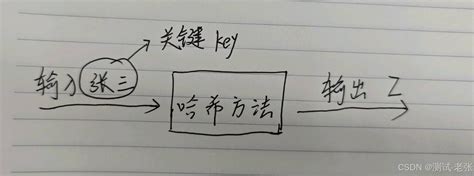 关键 key
输入 张三
哈希方法
输出 Z
CSDN @测试-老张